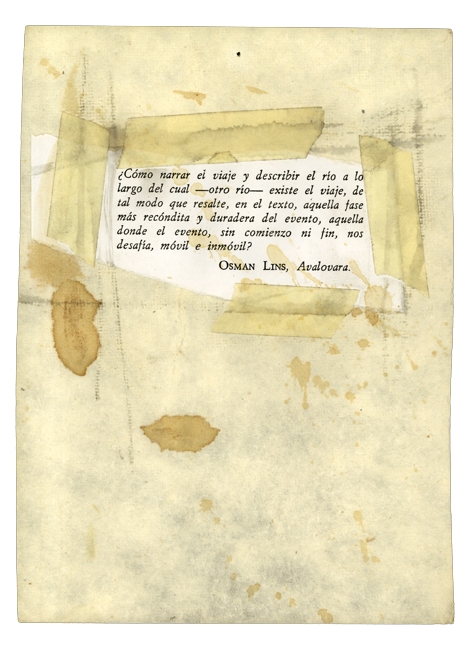 ¿Cómo narrar el viaje y describir el río a lo
largo del cual —otro río— existe el viaje, de
tal modo que resalte, en el texto, aquella fase
más recóndita y duradera del evento, aquella
donde el evento, sin comienzo ni fin, nos
desafía, móvil e inmóvil?
OSMAN LINS, Avalovara.